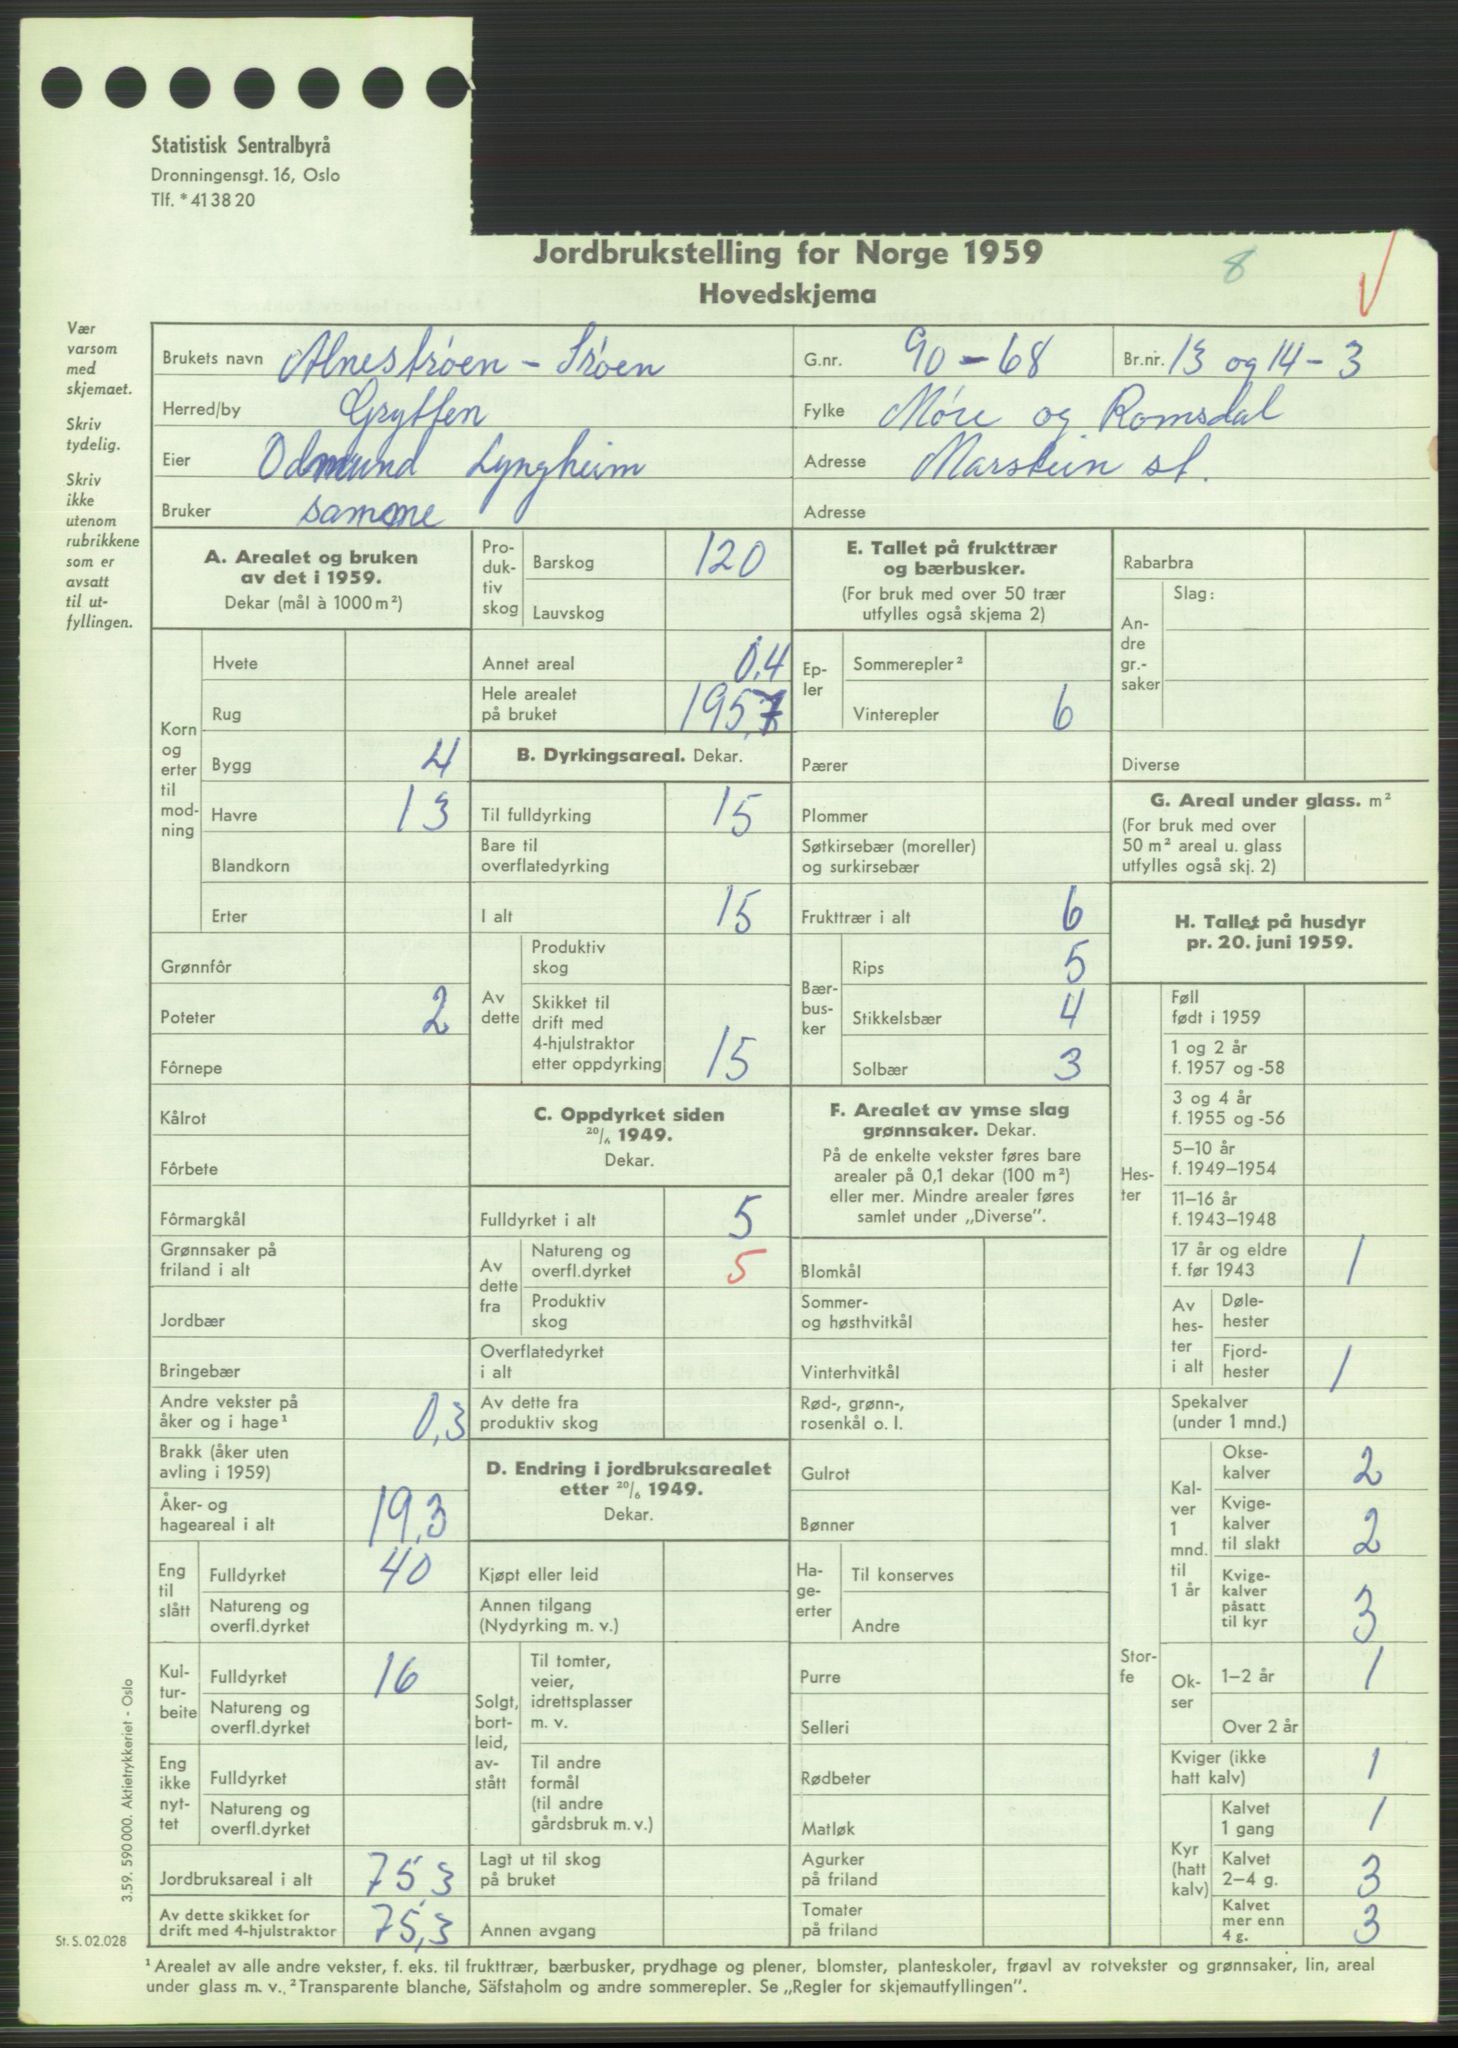 Statistisk Sentralbyrå
Dronningensgt. 16, Oslo
Tlf. * 41 38 20
Jordbrukstelling for Norge 1959
8
Hovedskjema
Vær
varsom
med
skjemaet.
Skriv
tydelig.
Skriv
ikke
utenom
rubrikkene
som er
avsatt
til ut-
fyllingen.
Brukets navn Alnestrøen - Trøen G.nr. 90-68 Br.nr. 13 og 14-3
Herred/by Grytten Fylke Møre og Romsdal
Eier Odmund Lyngheim Adresse Marstein st.
Bruker samme Adresse
A. Arealet og bruken
av det i 1959.
Dekar (mål à 1000 m²)
Korn
og
erter
til
mod-
ning
Hvete
Rug
Bygg 4
Havre 13
Blandkorn
Erter
Grønnfôr
Poteter 2
Fôrnepe
Kålrot
Fôrbete
Fôrmargkål
Grønnsaker på
friland i alt
Jordbær
Bringebær
Andre vekster på
åker og i hage¹ 0,3
Brakk (åker uten
avling i 1959)
Åker- og
hageareal i alt 19,3
Eng
til
slått
Fulldyrket 40
Natureng og
overfl.dyrket
Kul-
tur-
beite
Fulldyrket 16
Natureng og
overfl.dyrket
Eng
ikke
nyt-
tet
Fulldyrket
Natureng og
overfl.dyrket
Jordbruksareal i alt 75,3
Av dette skikket for
drift med 4-hjulstraktor 75,3
Pro-
duk-
tiv
skog
Barskog 120
Lauvskog
Annet areal 0,4
Hele arealet
på bruket 195,7
B. Dyrkingsareal. Dekar.
Til fulldyrking 15
Bare til
overflatedyrking
I alt 15
Av
dette
Produktiv
skog
Skikket til
drift med
4-hjulstraktor
etter oppdyrking 15
C. Oppdyrket siden
20/6 1949.
Dekar.
Fulldyrket i alt 5
Av
dette
fra
Natureng og
overfl.dyrket 5
Produktiv
skog
Overflatedyrket
i alt
Av dette fra
produktiv skog
D. Endring i jordbruksarealet
etter 20/6 1949.
Dekar.
Kjøpt eller leid
Annen tilgang
(Nydyrking m. v.)
Solgt,
bort-
leid,
av-
stått
Til tomter,
veier,
idrettsplasser
m. v.
Til andre
formål
(til andre
gårdsbruk m. v.)
Lagt ut til skog
på bruket
Annen avgang
E. Tallet på frukttrær
og bærbusker.
(For bruk med over 50 trær
utfylles også skjema 2)
Ep-
ler
Sommerepler²
Vinterepler 6
Pærer
Plommer
Søtkirsebær (moreller)
og surkirsebær
Frukttrær i alt 6
Bær-
bus-
ker
Rips 5
Stikkelsbær 4
Solbær 3
F. Arealet av ymse slag
grønnsaker. Dekar.
På de enkelte vekster føres bare
arealer på 0,1 dekar (100 m²)
eller mer. Mindre arealer føres
samlet under „Diverse".
Blomkål
Sommer-
og høsthvitkål
Vinterhvitkål
Rød-, grønn-,
rosenkål o. l.
Gulrot
Bønner
Ha-
ge-
erter
Til konserves
Andre
Purre
Selleri
Rødbeter
Matløk
Agurker
på friland
Tomater
på friland
Rabarbra
An-
dre
gr.-
saker
Slag:
Diverse
G. Areal under glass. m²
(For bruk med over
50 m² areal u. glass
utfylles også skj. 2)
H. Tallet på husdyr
pr. 20. juni 1959.
Hes-
ter
Føll
født i 1959
1 og 2 år
f. 1957 og -58
3 og 4 år
f. 1955 og -56
5-10 år
f. 1949-1954
11-16 år
f. 1943-1948
17 år og eldre
f. før 1943 1
Av
hes-
ter
i alt
Døle-
hester
Fjord-
hester 1
Stor-
fe
Spekalver
(under 1 mnd.)
Kal-
ver
1
mnd.
til
1 år
Okse-
kalver 2
Kvige-
kalver
til slakt 2
Kvige-
kalver
påsatt
til kyr 3
Ok-
ser
1-2 år 1
Over 2 år
Kviger (ikke
hatt kalv) 1
Kyr
(hatt
kalv)
Kalvet
1 gang 1
Kalvet
2-4 g. 3
Kalvet
mer enn
4 g. 3
3.59. 590 000. Aktietrykkeriet - Oslo
St. S. 02.028
¹ Arealet av alle andre vekster, f. eks. til frukttrær, bærbusker, prydhage og plener, blomster, planteskoler, frøavl av rotvekster og grønnsaker, lin, areal
under glass m. v. ² Transparente blanche, Säfstaholm og andre sommerepler. Se „Regler for skjemautfyllingen".